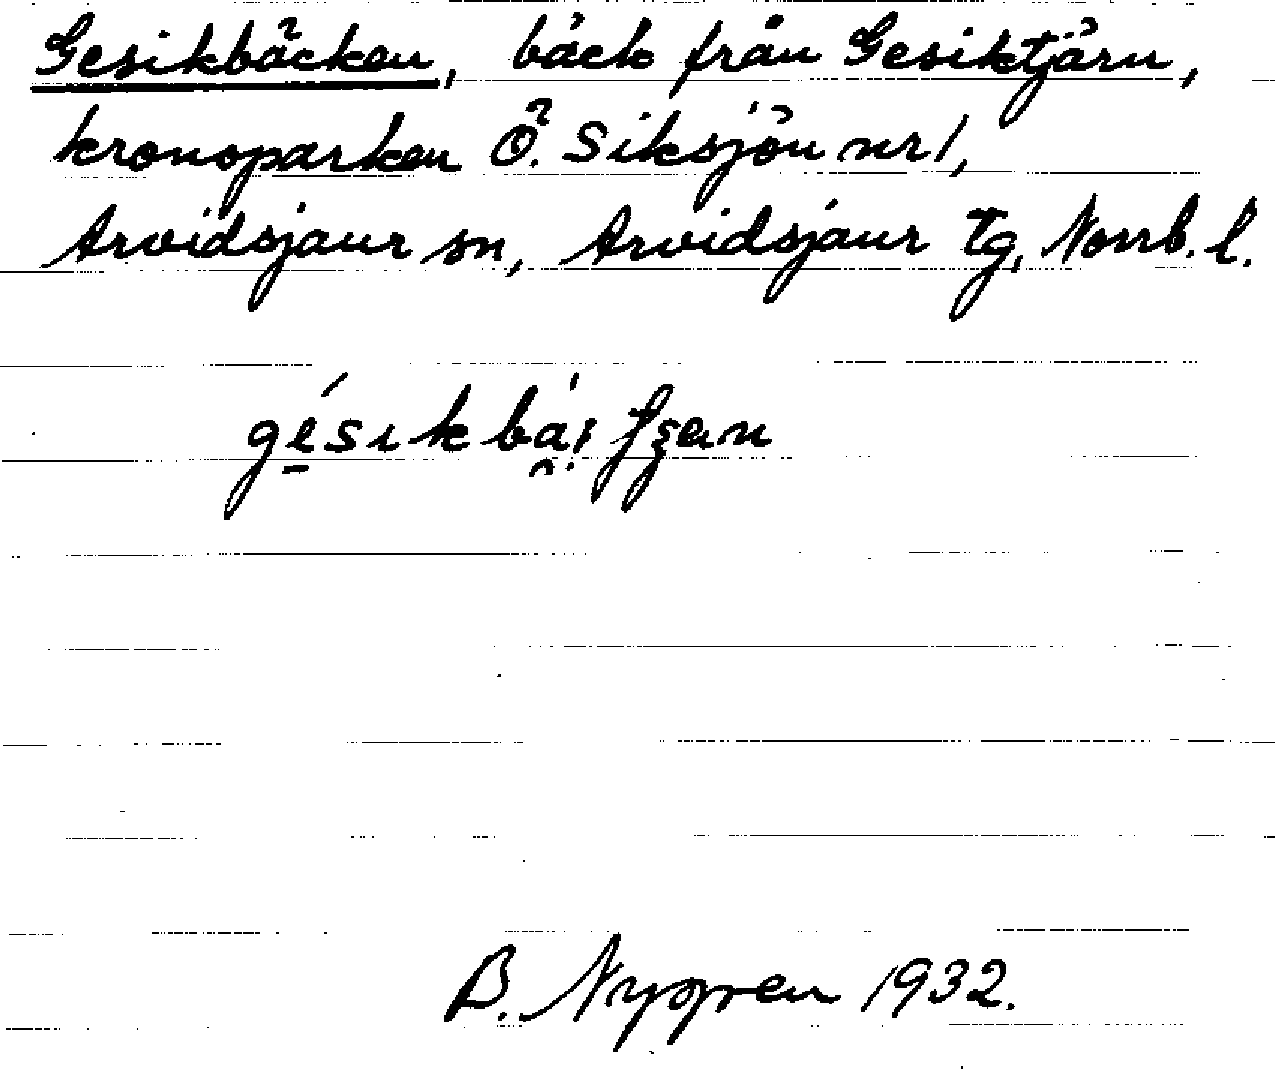 Gesikbäcken, bäck från Gesiktjärn,
kronoparken Ö. Siksjön nr 1,
Arvidsjaur sn, Arvidsjaur tg, Norrb. l.
B. Nygren 1932.